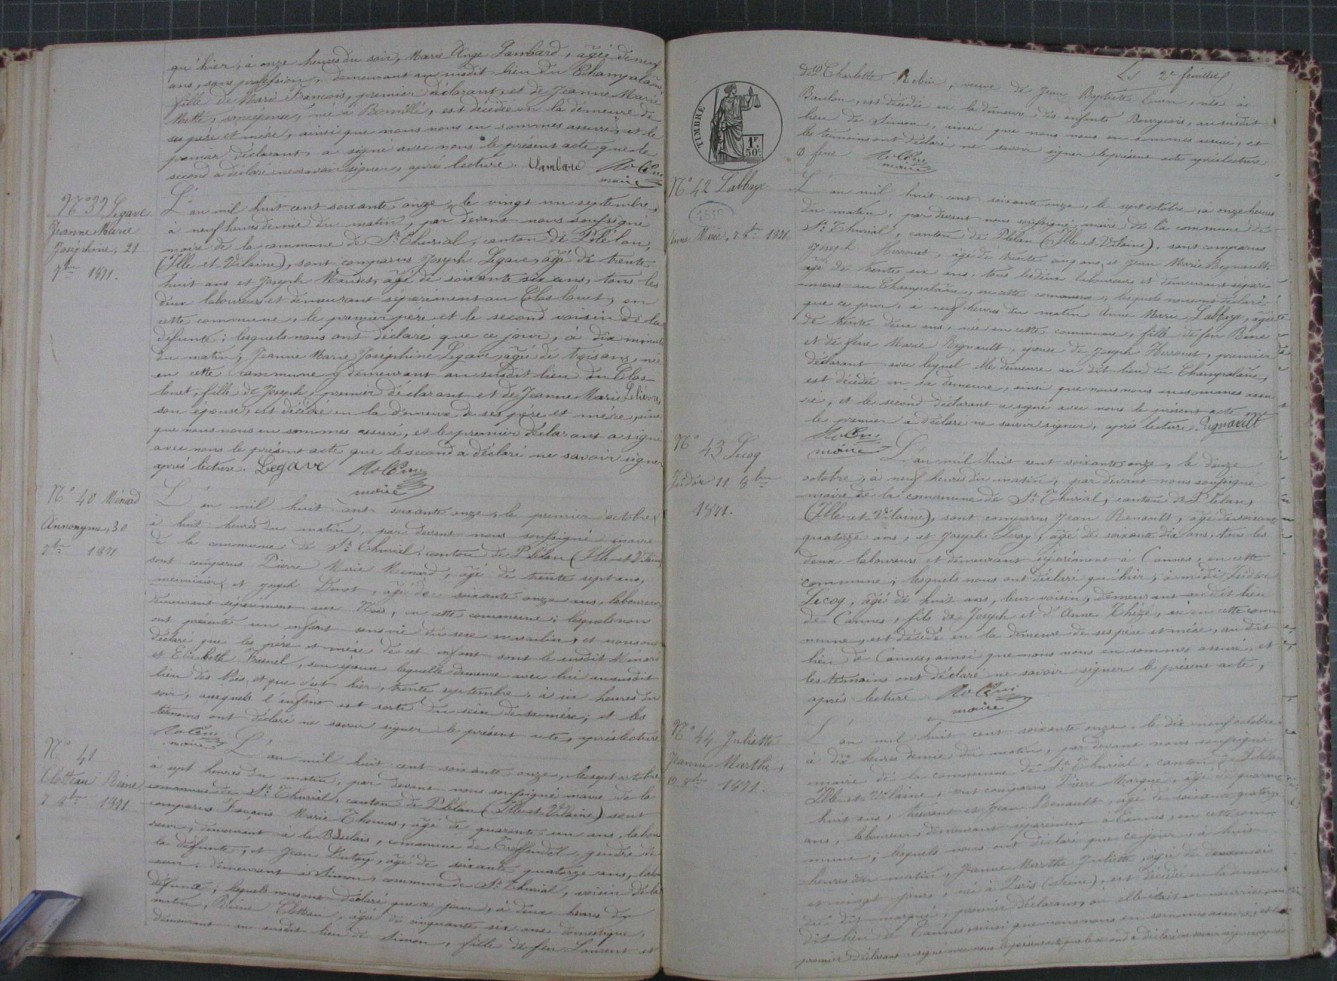 qu'hier, à onze heures du soir, Marie Ange Lambard, âgée de neuf
ans, sans profession, demeurant au susdit lieu du Champalaün,
fille de Marie François, premier déclarant, et de Jeanne Marie
son épouse, née à est décédée en la demeure de
ses père et mère, ainsi que nous nous en sommes assuré, et le
premier déclarant a signé avec nous le présent acte que le
second a déclaré ne savoir signer, après lecture Lambare
maire
N° 39 Legave
Jeanne Marie
Joséphine, 21
7bre 1871
L'an mil huit cent soixante onze, le vingt un septembre,
à neuf heures demie du matin, par devant nous soussigné
maire de la commune de St Thurial, canton de Plélan,
(Ille et Vilaine), sont comparus Joseph Legave, âgé de trente-
huit ans et Joseph âgé de soixante six ans, tous les
deux laboureurs et demeurant séparément au Clos en
cette commune, le premier père et le second voisin de la
défunte; lesquels nous ont déclaré que ce jour, à dix
du matin, Jeanne Marie Joséphine Legave, âgée de trois ans, née
en cette commune y demeurant au susdit lieu du Clos-
fille de Joseph, premier déclarant et de Jeanne Marie
son épouse, est décédée en la demeure de ses père et mère, ainsi
que nous nous en sommes assuré, et le premier déclarant a signé
avec nous le présent acte que le second a déclaré ne savoir signer
après lecture. Legave
maire
N° 40 Ménard
Annonyme, 30
7bre 1871
L'an mil huit cent soixante onze, le premier octobre,
à huit heures du matin, par devant nous soussigné maire
de la commune de St Thurial, canton de Plélan (Ille et Vilaine)
sont comparus Pierre Marie Menard, âgé de trente sept ans,
menuisier, et Joseph âgé de soixante onze ans, laboureur,
demeurant séparément au en cette commune; lesquels nous
ont présenté un enfant sans vie du sexe masculin, et nous ont
déclaré que les père et mère de cet enfant sont le susdit Menard
et Elisabeth son épouse laquelle demeure avec lui au susdit
lieu des et que c'est hier, trente septembre, à six heures du
soir, auxquels l'enfant est sorti du sein de sa mère; et les
témoins ont déclaré ne savoir signer le présent acte, après lecture
maire
N° 41
Clotteau Reine
7 8bre 1871
L'an mil huit cent soixante onze, le sept octobre
à sept heures du matin, par devant nous soussigné maire de la
commune de St Thurial, canton de Plélan (Ille et Vilaine) sont
comparus François Marie Thomas, âgé de quarante un ans, labou
reur, demeurant à la commune de Treffendel, gendre de
la défunte, et Jean âgé de soixante quatorze ans, labou
reur, demeurant à Simon, commune de St Thurial, voisin de la
défunte, lesquels nous ont déclaré que ce jour, à deux heures du
matin, Reine Clotteau, âgée de cinquante six ans, domestique,
demeurant au susdit lieu de Simon, fille de feu Laurent et
2e feuillet
TIMBRE
1F. 50c
de Charlotte Robin, veuve de Jean Baptiste née à
Baulon, est décédée en la demeure des enfants Bourgeois, au susdit
lieu de Simon, ainsi que nous nous en sommes assuré, et
les témoins ont déclaré ne savoir signer le présent acte après lecture
maire
N° 42 Labbaye
Anne Marie, 8bre 1871
L'an mil huit cent soixante onze, le sept octobre, à onze heures
du matin, par devant nous soussigné maire de la commune de
St Thurial, canton de Plélan (Ille et Vilaine), sont comparus
Joseph âgé de trente cinq ans, et Jean Marie Regnault
âgé de trente un ans, tous les deux laboureurs et demeurant séparé-
ment au Champalaün, en cette commune, lesquels nous ont déclaré
que ce jour, à neuf heures du matin Anne Marie Labbaye, âgée
de trente deux ans, née en cette commune, fille de feu René
et de feue Marie Regnault, épouse de Joseph premier
déclarant avec lequel elle demeure au dit lieu du Champalaün,
est décédée en sa demeure, ainsi que nous nous en sommes assu-
ré, et le second déclarant a signé avec nous le présent acte que
le premier a déclaré ne savoir signer, après lecture Regnault
maire
N° 43 Lecoq
Isidore 11 8bre
1871.
L'an mil huit cent soixante onze, le douze
octobre, à neuf heures du matin, par devant nous soussigné
maire de la commune de St Thurial, canton de Plélan,
(Ille et Vilaine), sont comparus Jean Renault, âgé de soixante
quatorze ans, et Joseph Leray, âgé de soixante dix ans, tous les
deux laboureurs et demeurant séparément à Cannes, en cette
commune; lesquels nous ont déclaré qu'hier, à midi Isidore
Lecoq, âgé de huit ans, leur voisin, demeurant au dit lieu
de Cannes, fils de Joseph et d'Anne Thézé, né en cette com-
mune, est décédé en la demeure de ses père et mère, au dit
lieu de Cannes, ainsi que nous nous en sommes assuré, et
les témoins ont déclaré ne savoir signer le présent acte,
après lecture
maire
N° 44 Juliette
Jeanne Marthe,
8bre 1871.
L'an mil huit cent soixante onze, le dix neuf octobre
à dix heures demie du matin, par devant nous soussigné
maire de la commune de St Thurial, canton de Plélan
(Ille et Vilaine), sont comparus Pierre Margue, âgé de quarante
huit ans, et Jean Renault, âgé de soixante quatorze
ans, laboureur, demeurant séparément à Cannes, en cette com-
mune, lesquels nous ont déclaré que ce jour à huit
heures du matin, Jeanne Marthe Juliette, âgée de deux mois
et vingt jours, née à Paris (Seine), est décédée en la demeure
du dit Margue, premier déclarant, où elle était en nourrice, au
dit lieu de Cannes, ainsi que nous nous en sommes assuré, et le
premier déclarant a signé avec nous le présent acte que le second a déclaré ne savoir signer, après